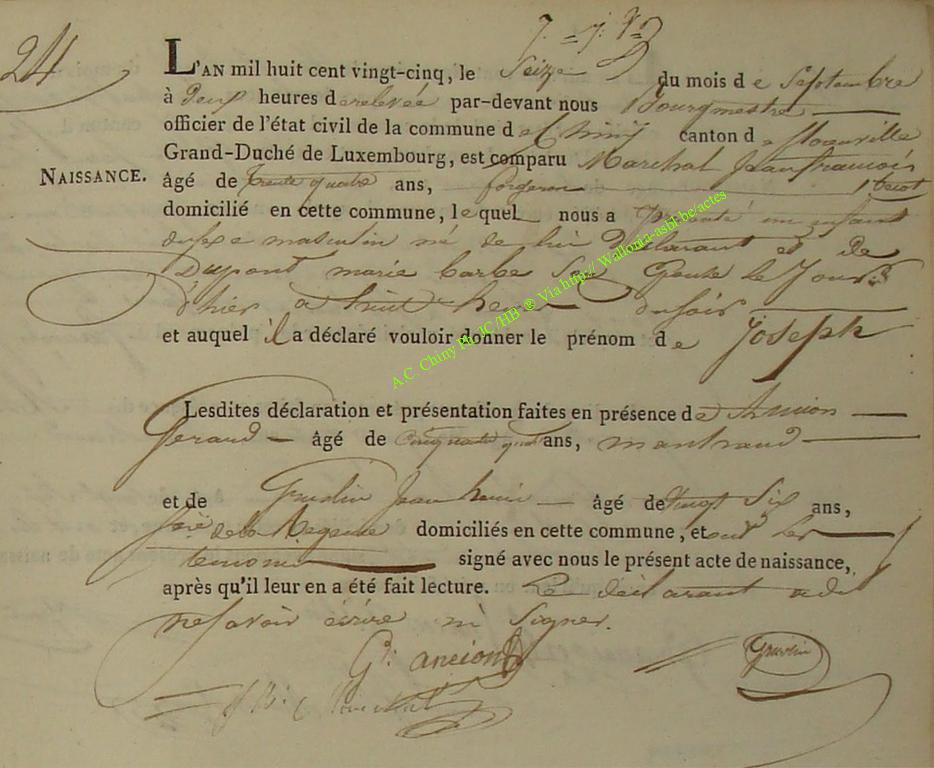 24
L'AN mil huit cent vingt-cinq, le Seize du mois de Septembre
à Deux heures de relevée par-devant nous Bourgmestre
officier de l'état civil de la commune de Chiny canton de florenville
Grand-Duché de Luxembourg, est comparu Marchal Jean francois
NAISSANCE.
âgé de trente quatre ans, forgeron
domicilié en cette commune, lequel nous a présenté un enfant
du sexe masculin né de lui déclarant et de
Dupont marie barbe son Epouse le Jour
d'hier a huit heures du soir
et auquel il a déclaré vouloir donner le prénom de Joseph
Lesdites déclaration et présentation faites en présence de Ancion
Gerard âgé de cinquante quatre ans, marchand
et de Gruslin Jean henri âgé de vingt Six ans,
domiciliés en cette commune, et ont Les
temoins signé avec nous le présent acte de naissance,
après qu'il leur en a été fait lecture. Le déclarant a dit
ne savoir écrire ni Signer.
Gd. ancion
Gruslin
A.C. Chiny Ph. JC /HB ® Via http:// Wallonia-asbl.be/actes